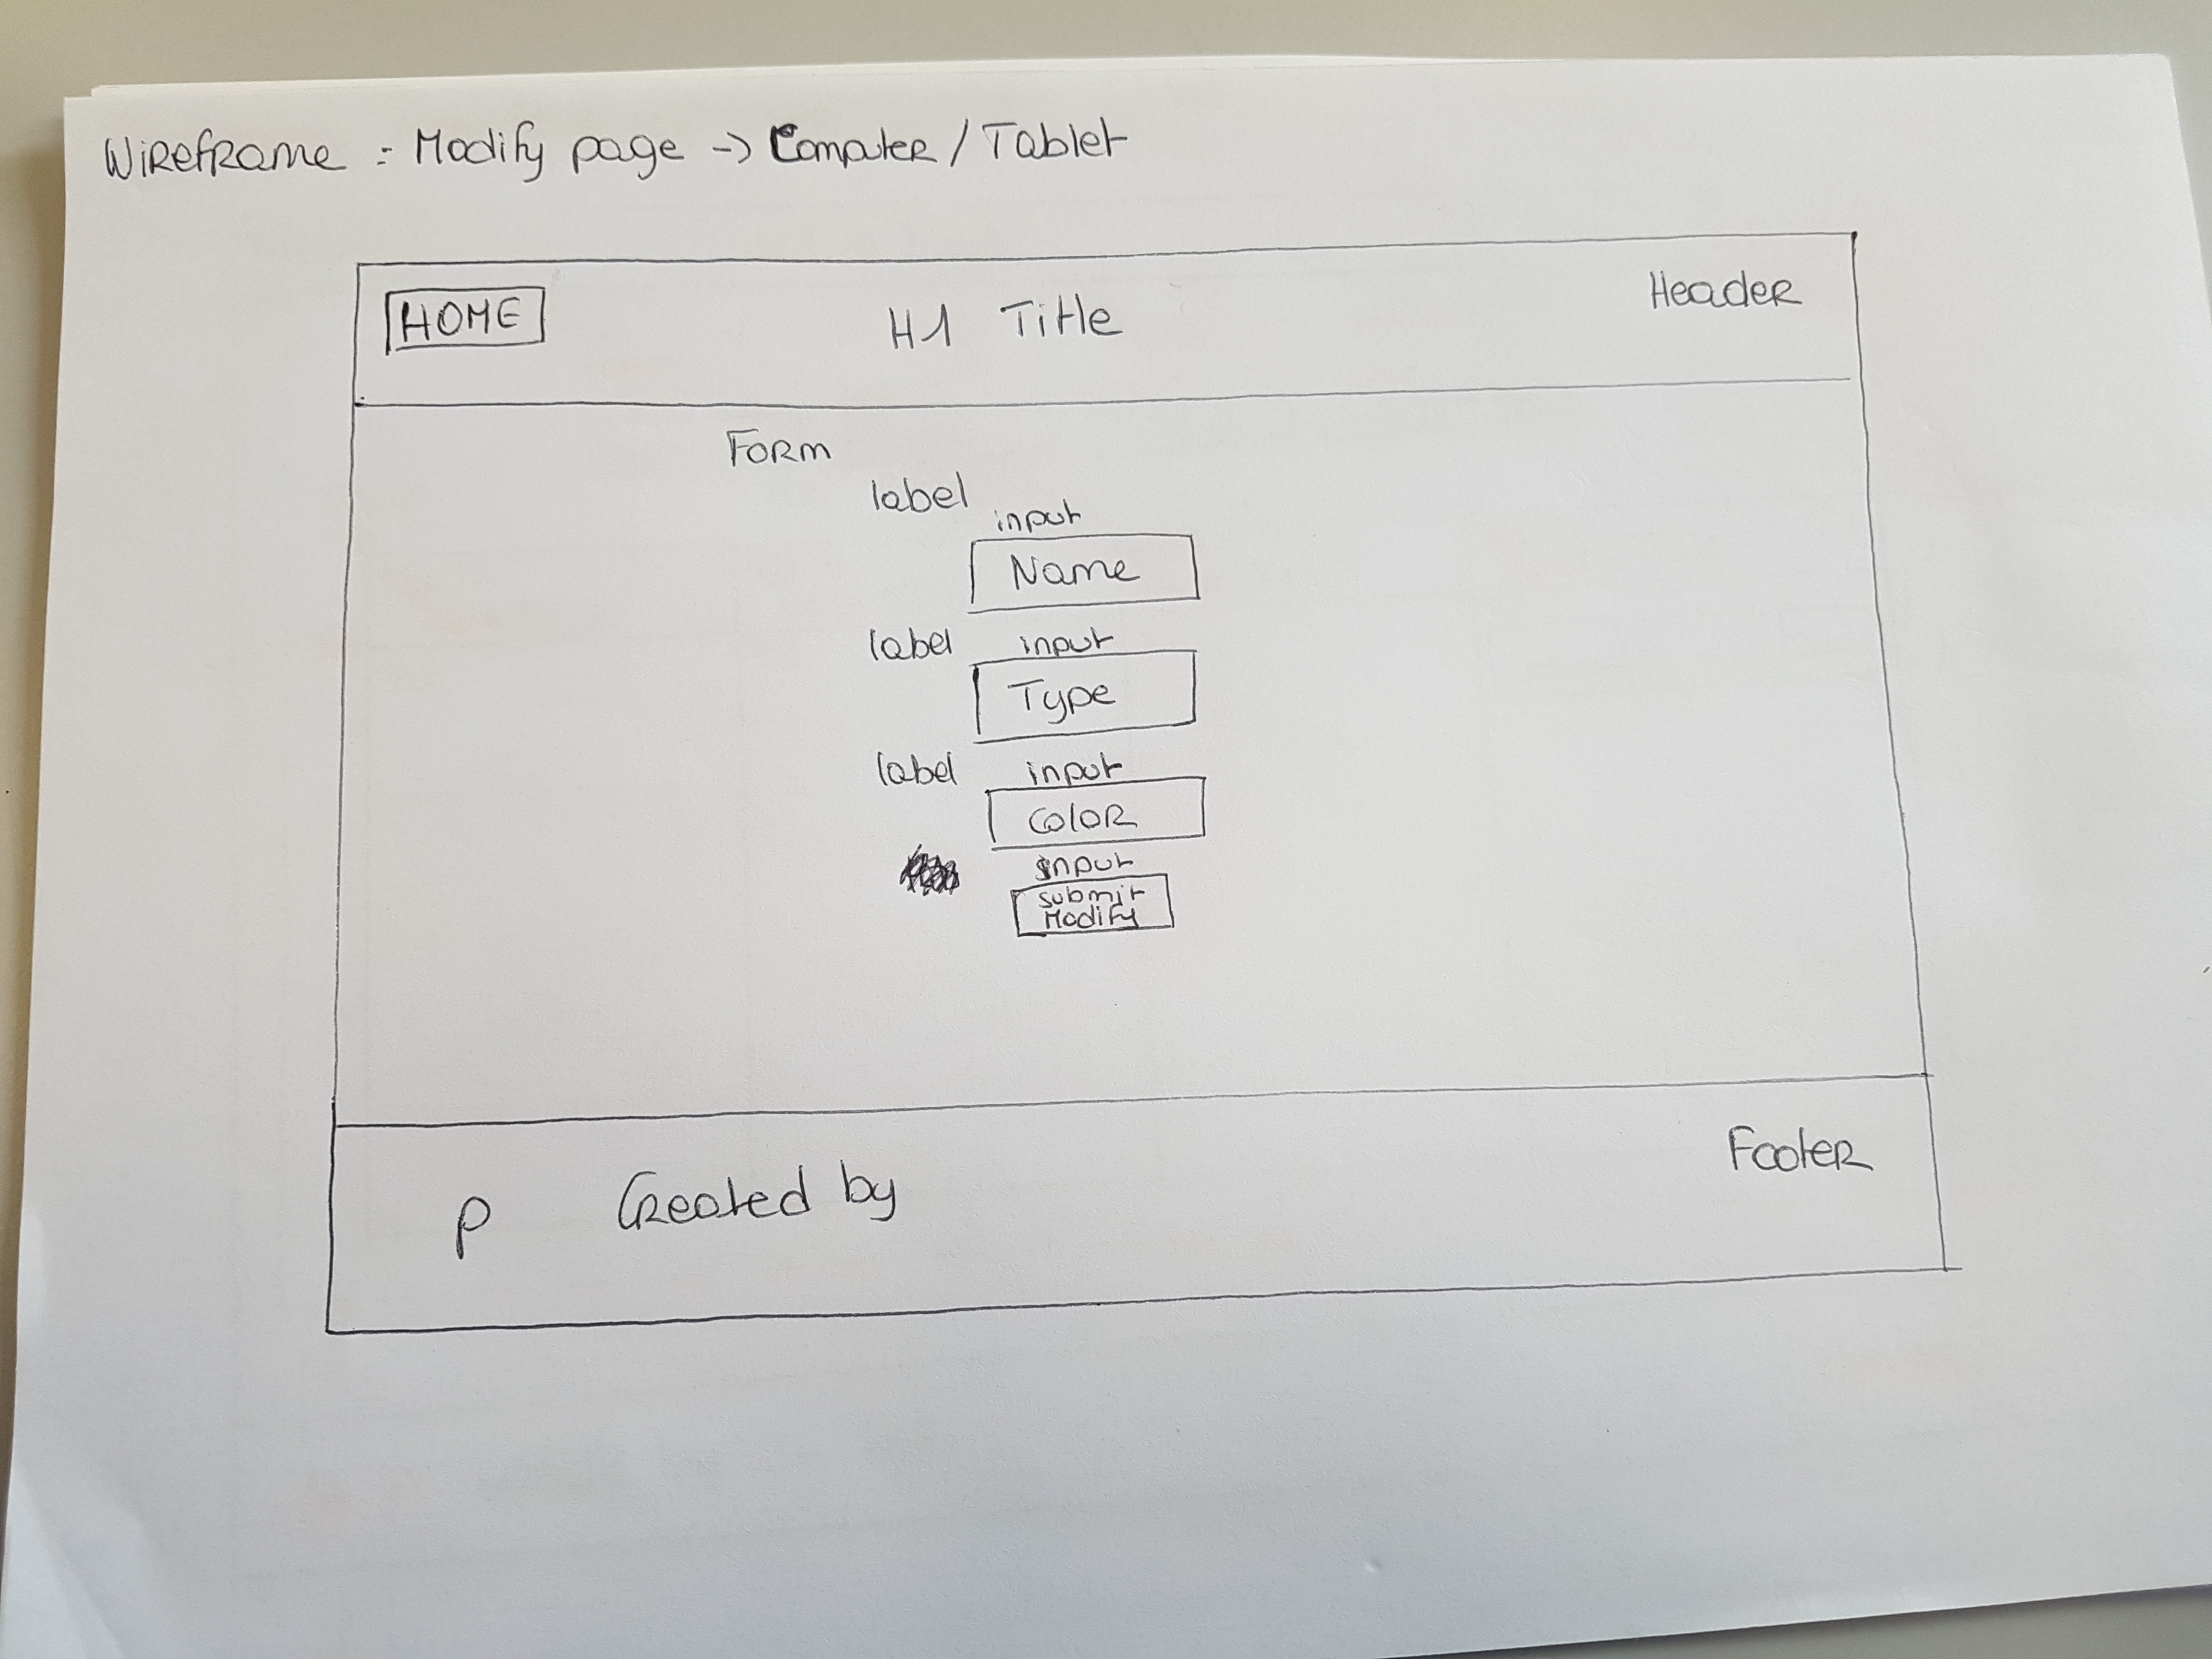 Wireframe : Modify page -> Computer / Tablet
HOME
H1 Title
Header
Form
label
input
Name
label input
Type
label input
Color
input
submit
Modify
Footer
P Created by